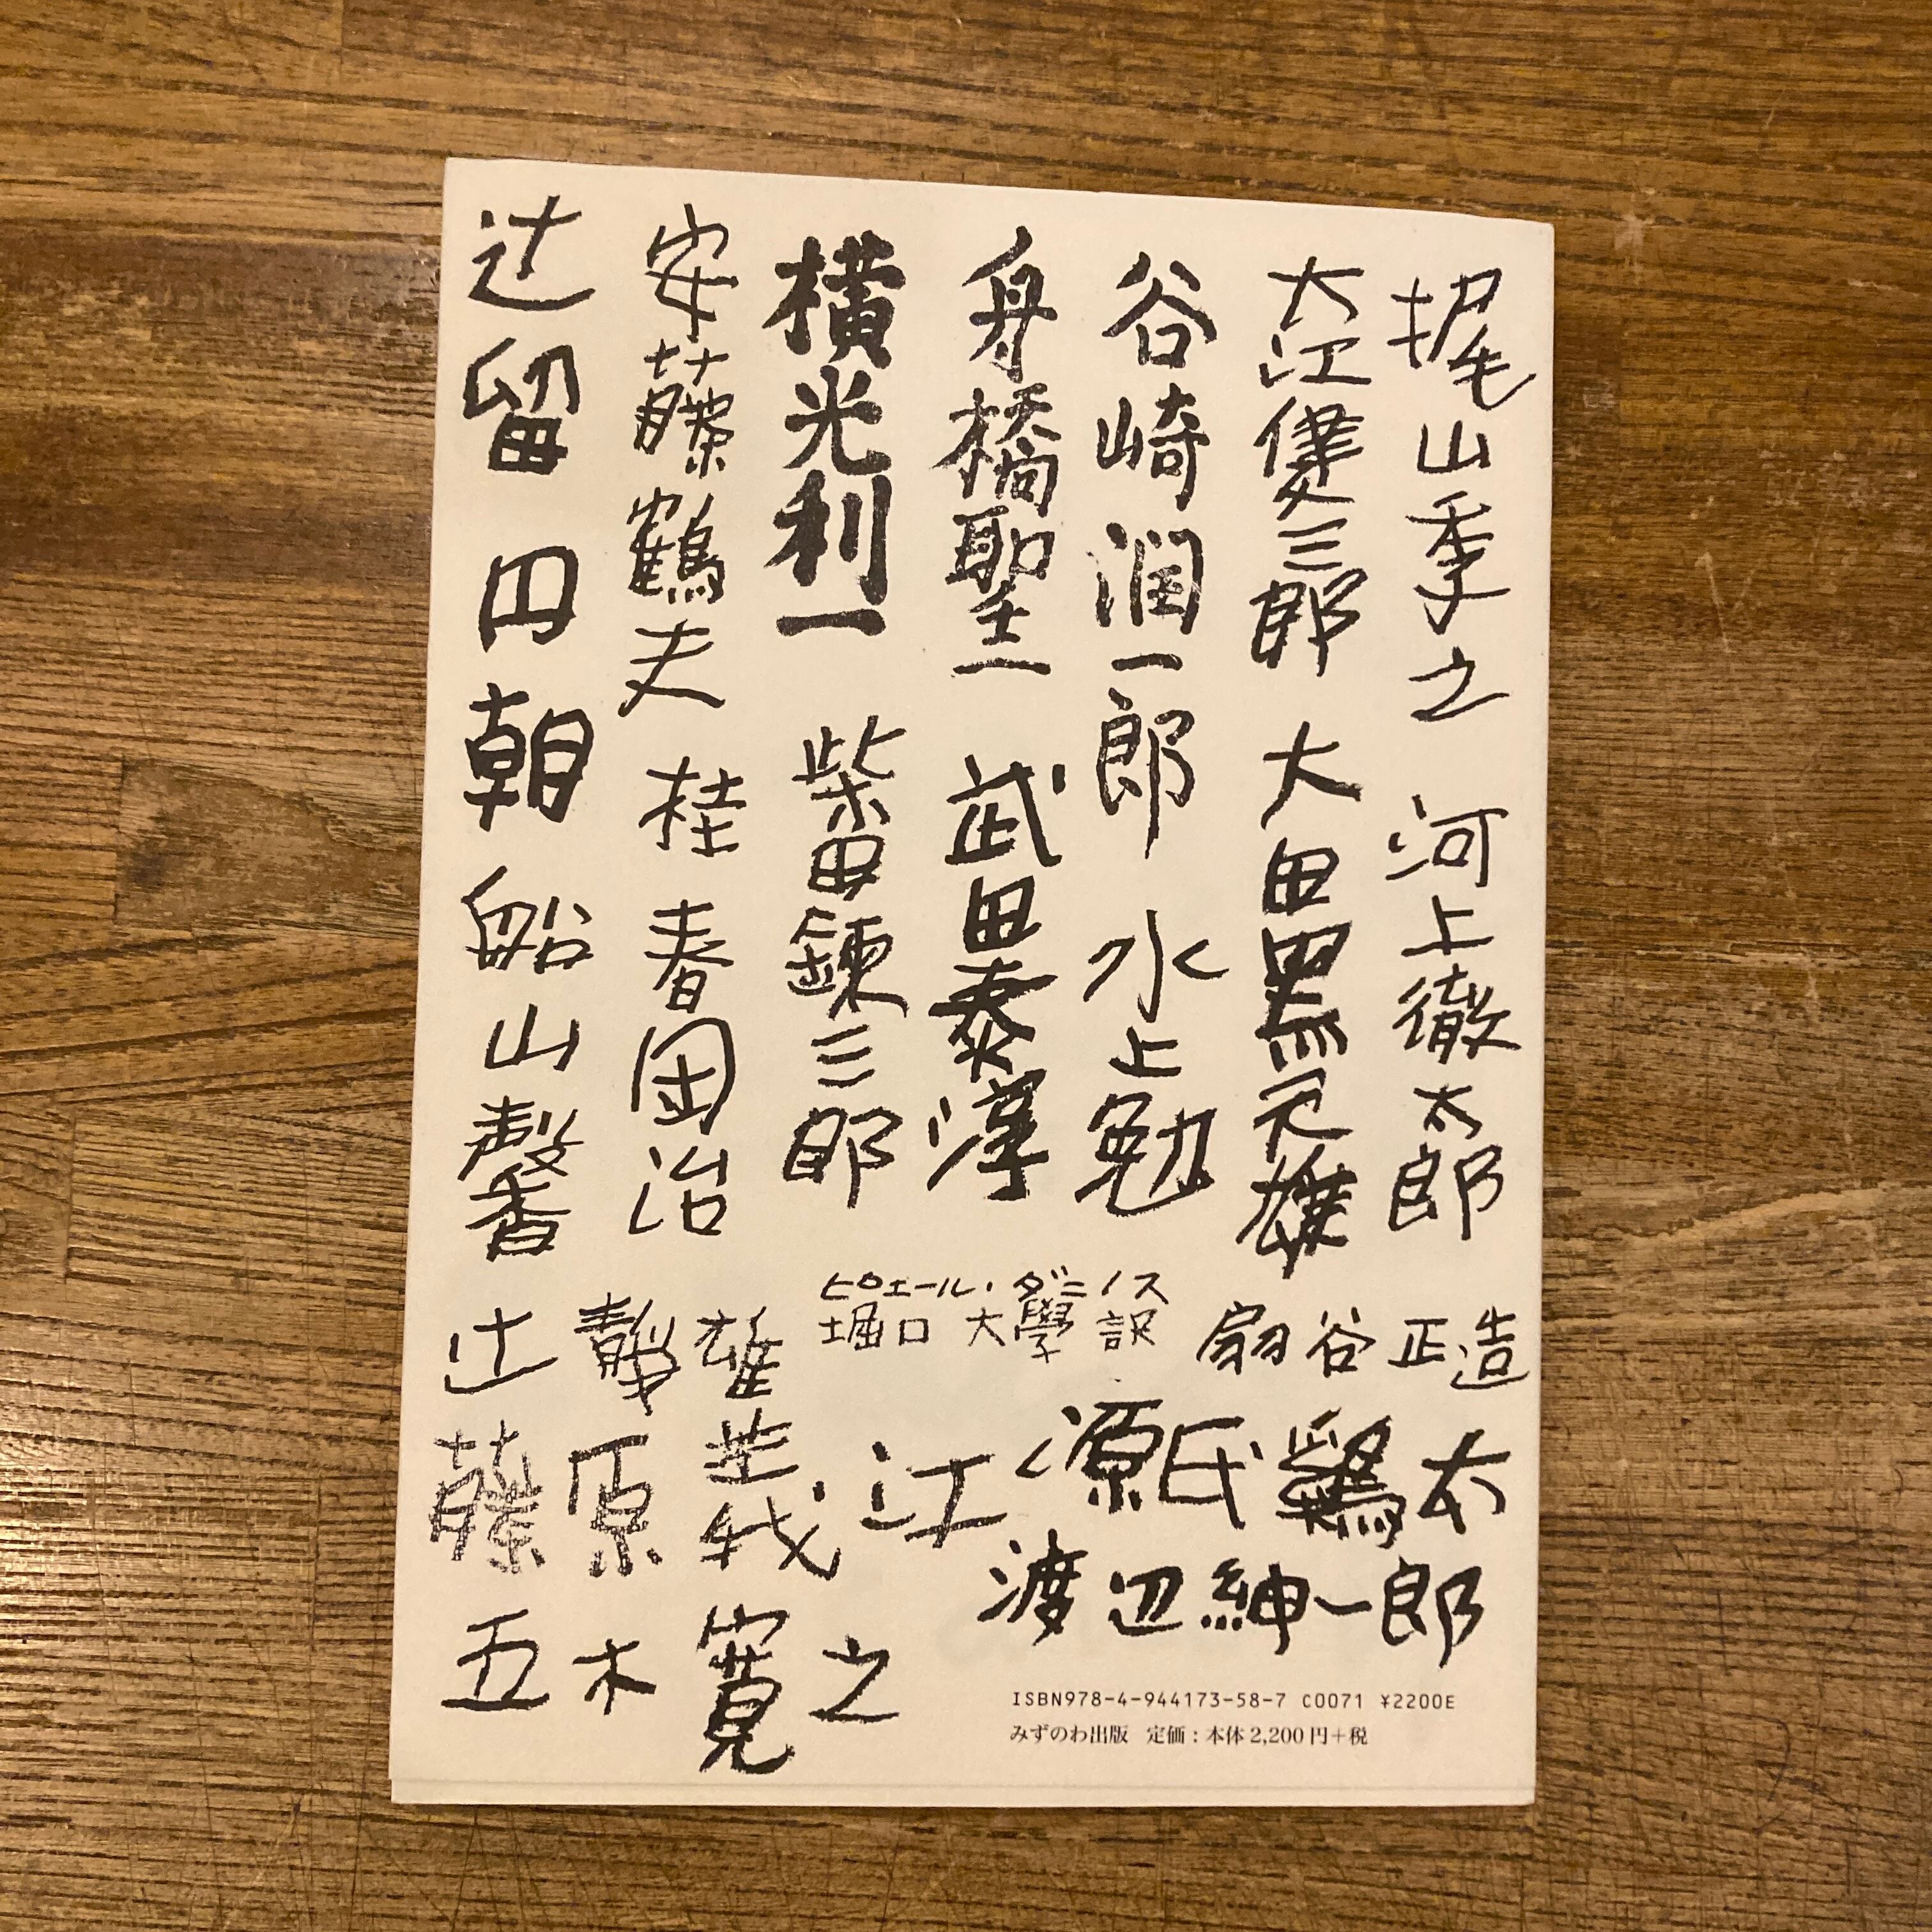 梶山季之 河上徹太郎
大江健三郎 大田黒元雄
谷崎潤一郎 水上勉
舟橋聖一 武田泰淳
横光利一 柴田錬三郎
安藤鶴夫 桂春団治
辻留 円朝 船山馨
ピエール・ダニノス
堀口大學訳
扇谷正造
辻静雄
源氏鶏太
藤原義江
渡辺紳一郎
五木寛之
ISBN978-4-944173-58-7 C0071 ¥2200E
みずのわ出版 定価:本体2,200円+税